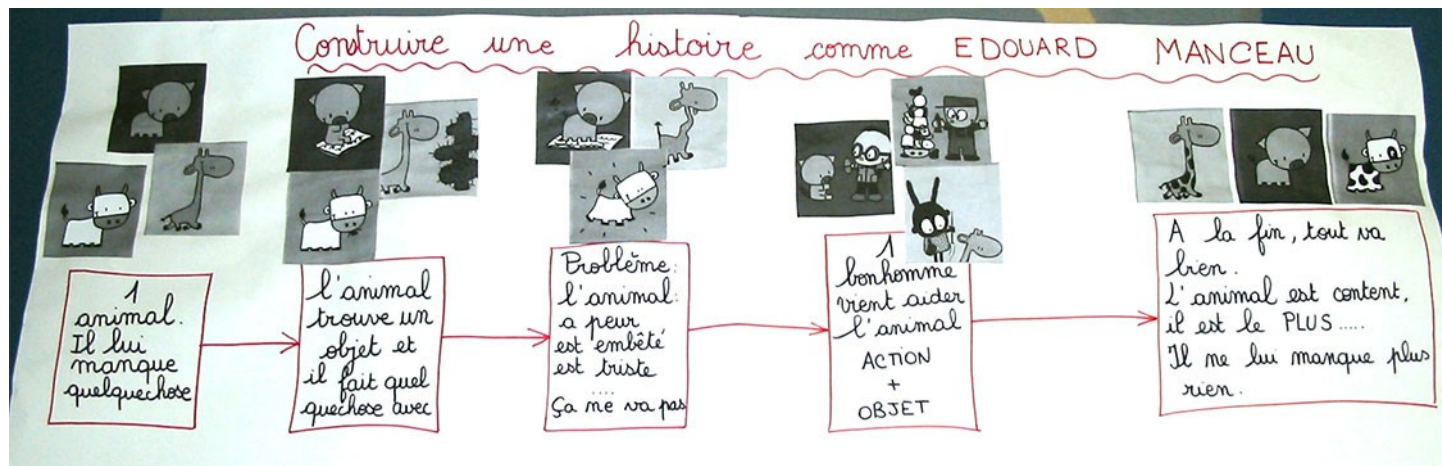 Construire une histoire comme EDOUARD MANCEAU
1
animal.
Il lui
manque
quelquechose
l'animal
trouve un
objet et
il fait quel
quechose avec
Problème:
l'animal:
a peur
est embêté
est triste
....
Ça ne va pas
1
bonhomme
vient aider
l'animal
ACTION
+
OBJET
A la fin, tout va
bien.
L'animal est content,
il est le PLUS.....
Il ne lui manque plus
rien.